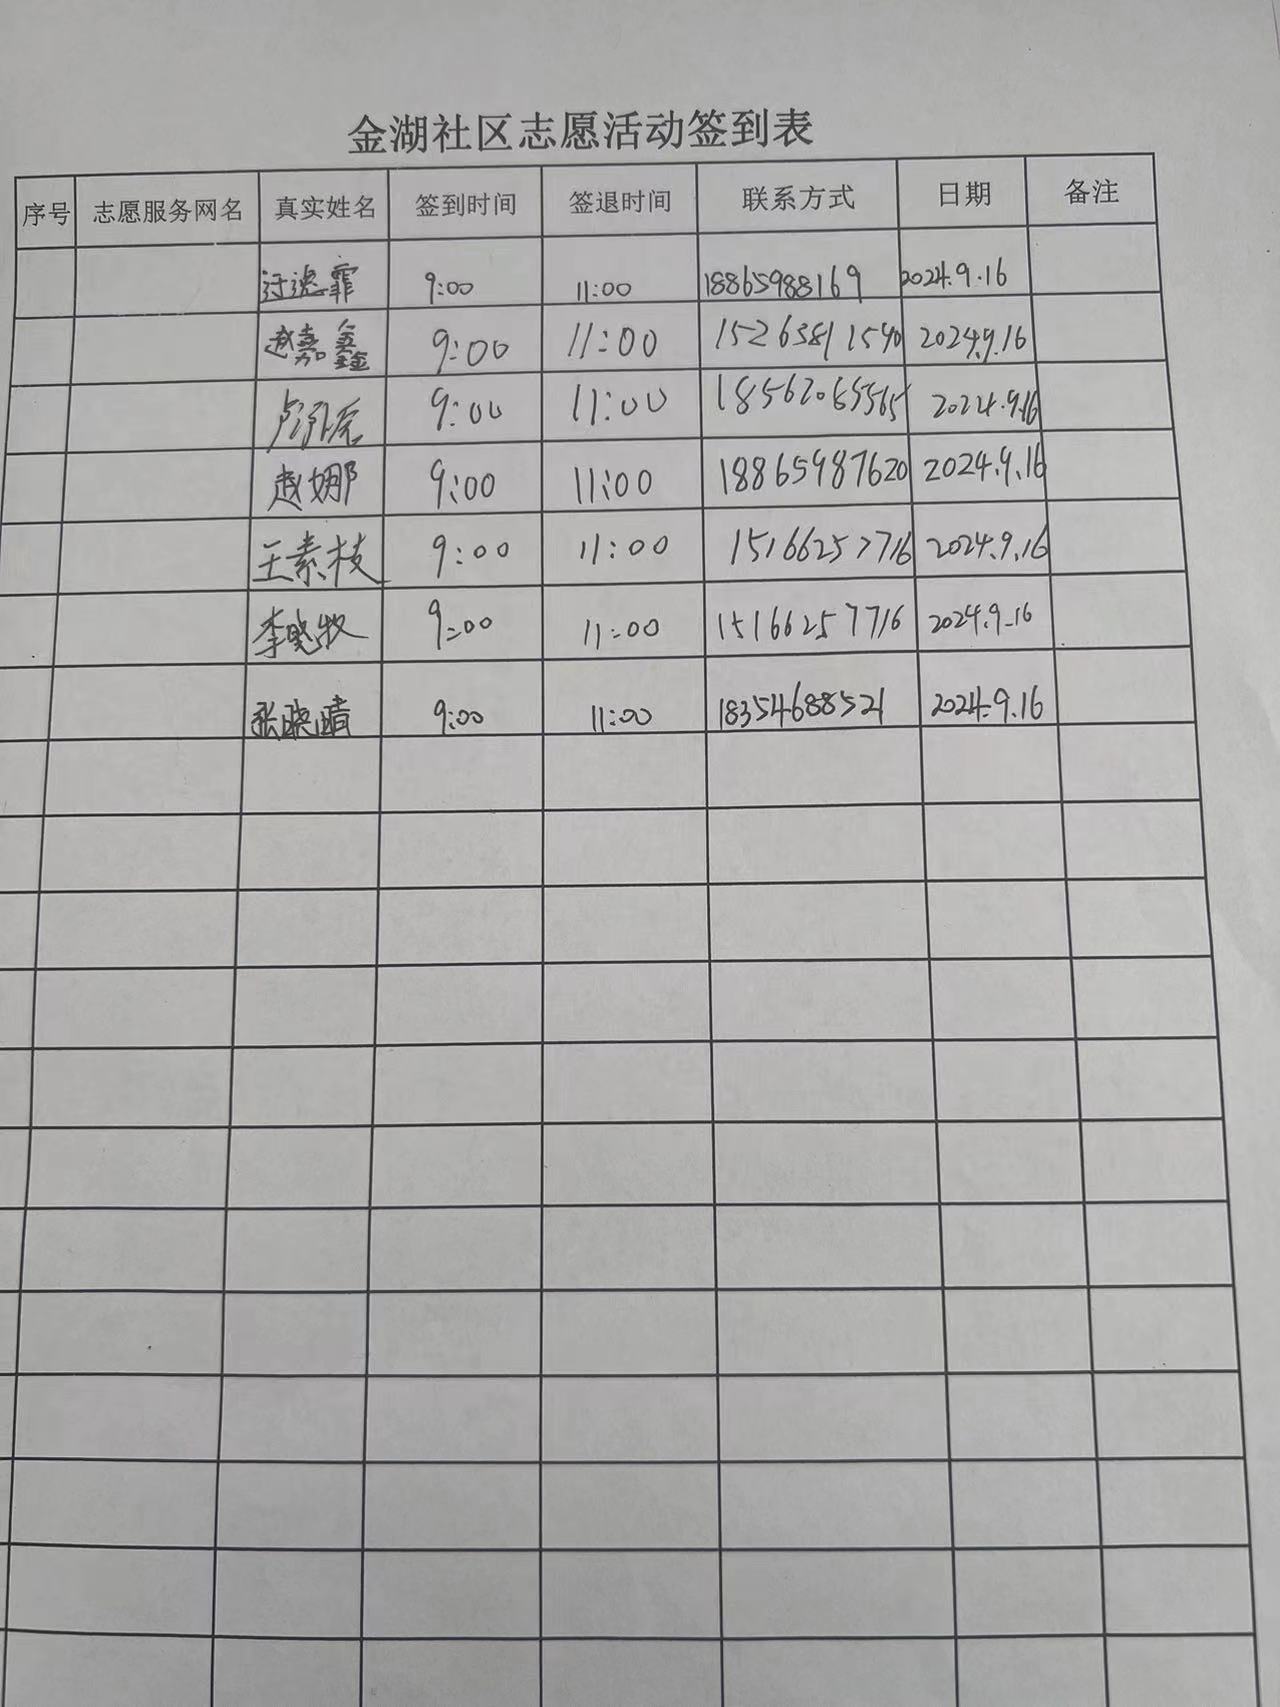 金湖社区志愿活动签到表
序号 志愿服务网名 真实姓名 签到时间 签退时间 联系方式 日期 备注
9:00 11:00 18865988169 2024.9.16
赵嘉鑫 9:00 11:00 15263811540 2024.9.16
9:00 11:00 18562065565 2024.9.16
赵娜 9:00 11:00 18865987620 2024.9.16
王素枝 9:00 11:00 15166257716 2024.9.16
李晓牧 9:00 11:00 15166257716 2024.9.16
张晓晴 9:00 11:00 18354688521 2024.9.16